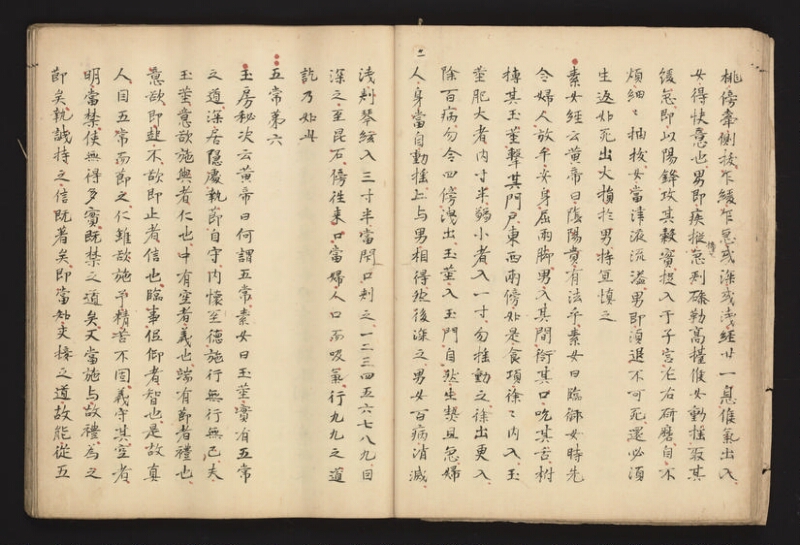 桃傍牽側拔乍緩乍急或深或淺經廿一息候氣出入
女得快意也男即疾摐急刺磣勒高擡候女動搖取其
緩急即以陽鋒攻其穀實捉入于子宮左右研磨自不
煩細〻抽拔女當津液流溢男即須退不可死還必須
生返如死出大損於男持宜慎之
素女經云黃帝曰陰陽貴有法乎素女曰臨御女時先
令婦人放平安身屈兩脚男入其間銜其口吮其舌拊
搏其玉莖擊其門戶東西兩傍如是食頃徐〻內入玉
莖肥大者內寸半弱小者入一寸勿搖動之徐出更入
除百病勿令四傍洩出玉莖入玉門自然生熱且急婦
人身當自動搖上与男相得然後深之男女百病消滅
淺刺琴絃入三寸半當閇口刺之一二三四五六七八九因
深之至昆石傍往來口當婦人口而吸氣行九九之道
訖乃如此
五常第六
玉房秘决云黃帝曰何謂五常素女曰玉莖實有五常
之道深居隱處執節自守內懷至德施行無行無已夫
玉莖意欲施與者仁也中有空者義也端有節者禮也
意欲即起不欲即止者信也臨事低仰者智也是故真
人因五常而節之仁雖欲施予精苦不固義守其空者
明當禁使無得多實既禁之道矣又當施与故禮為之
節矣執誠持之信既著矣即當知交接之道故能從五